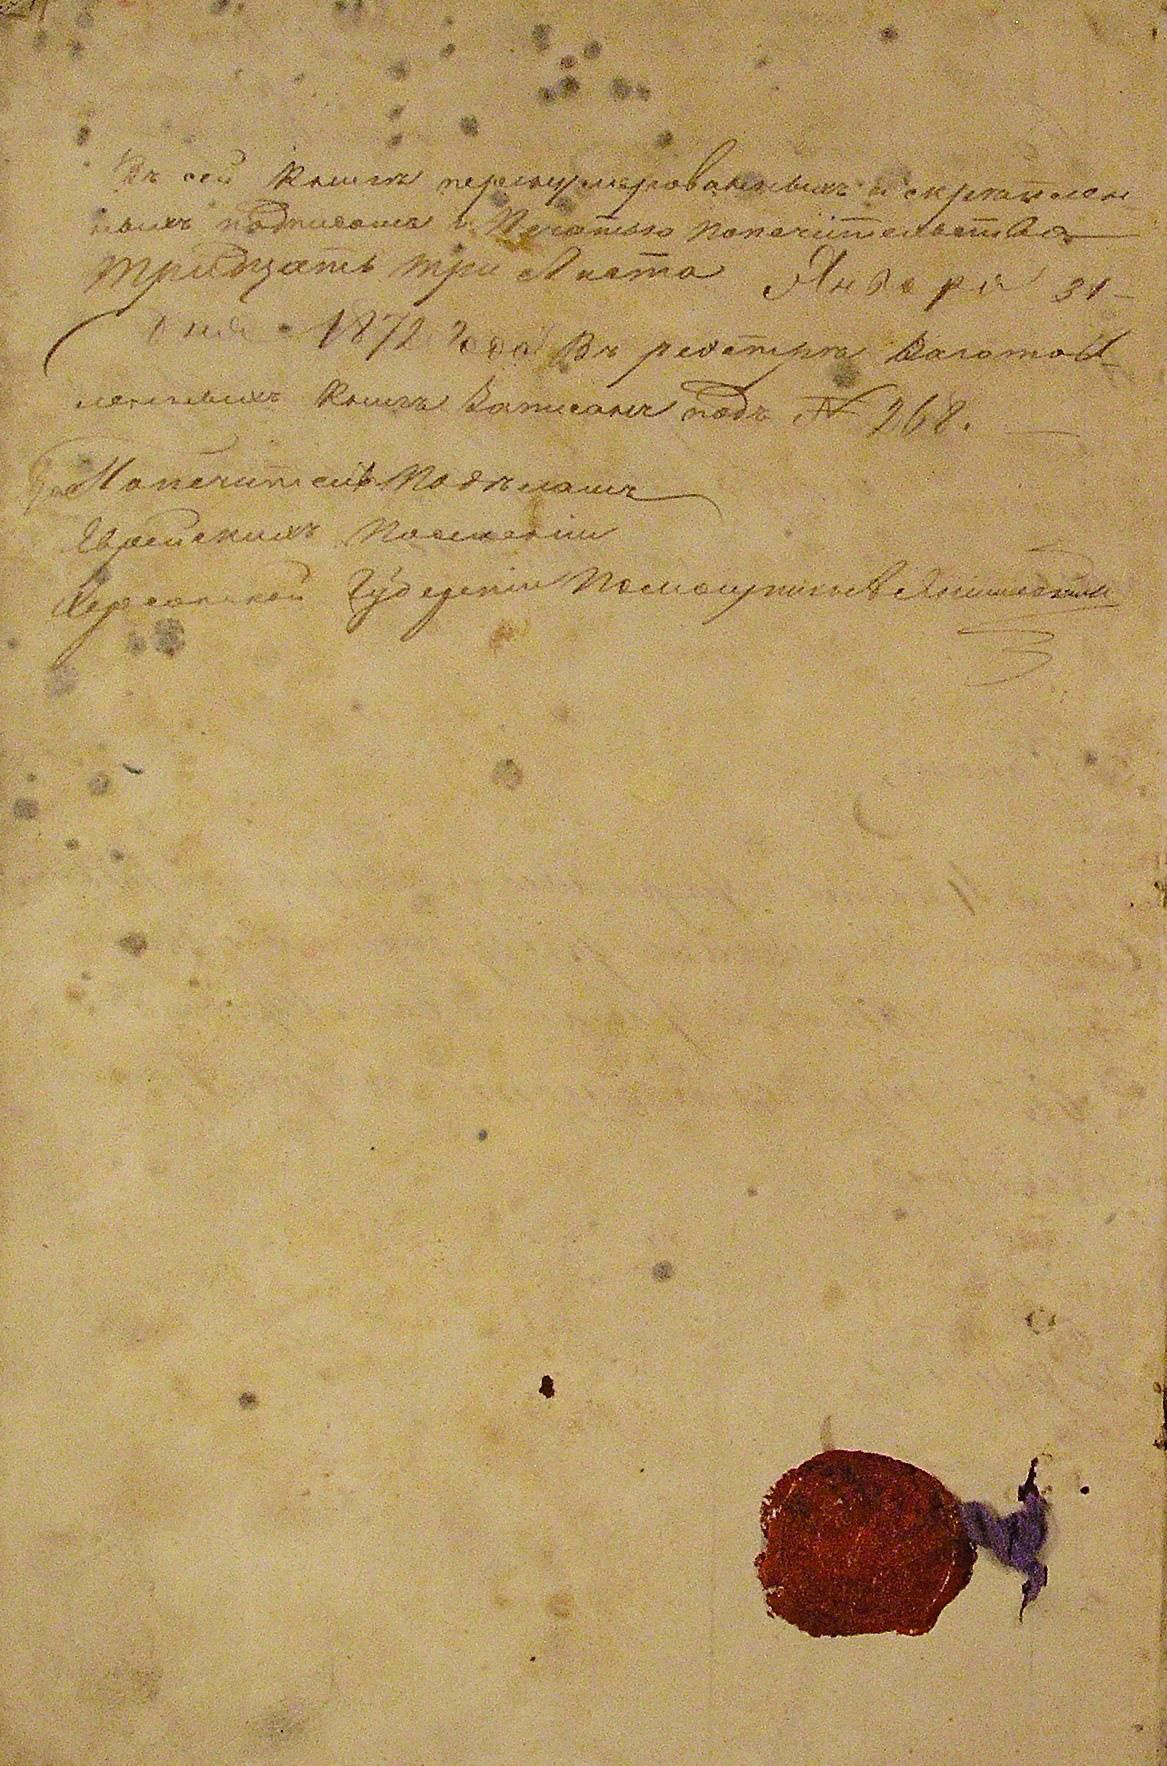 Въ сей книгѣ перенумерованныхъ и скрѣплен-
ныхъ подписомъ и Печатью попечительства
тридцать три листа Января 31
дня 1872 года Въ реестрѣ Заготов-
ленныхъ книгъ Записанъ подъ № 268.
Попечитель По дѣламъ
Еврейскихъ Поселеній
Херсонской Губерніи Помощникъ